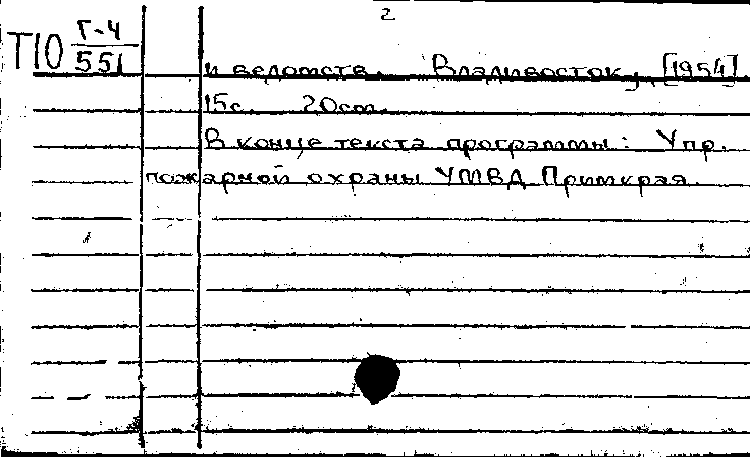 2
Т10 Г-4
551
и ведомств. Владивосток, [1954]
15с. 20cm.
В конце текста программы: Упр.
пожарной охраны УМВД Примкрая.